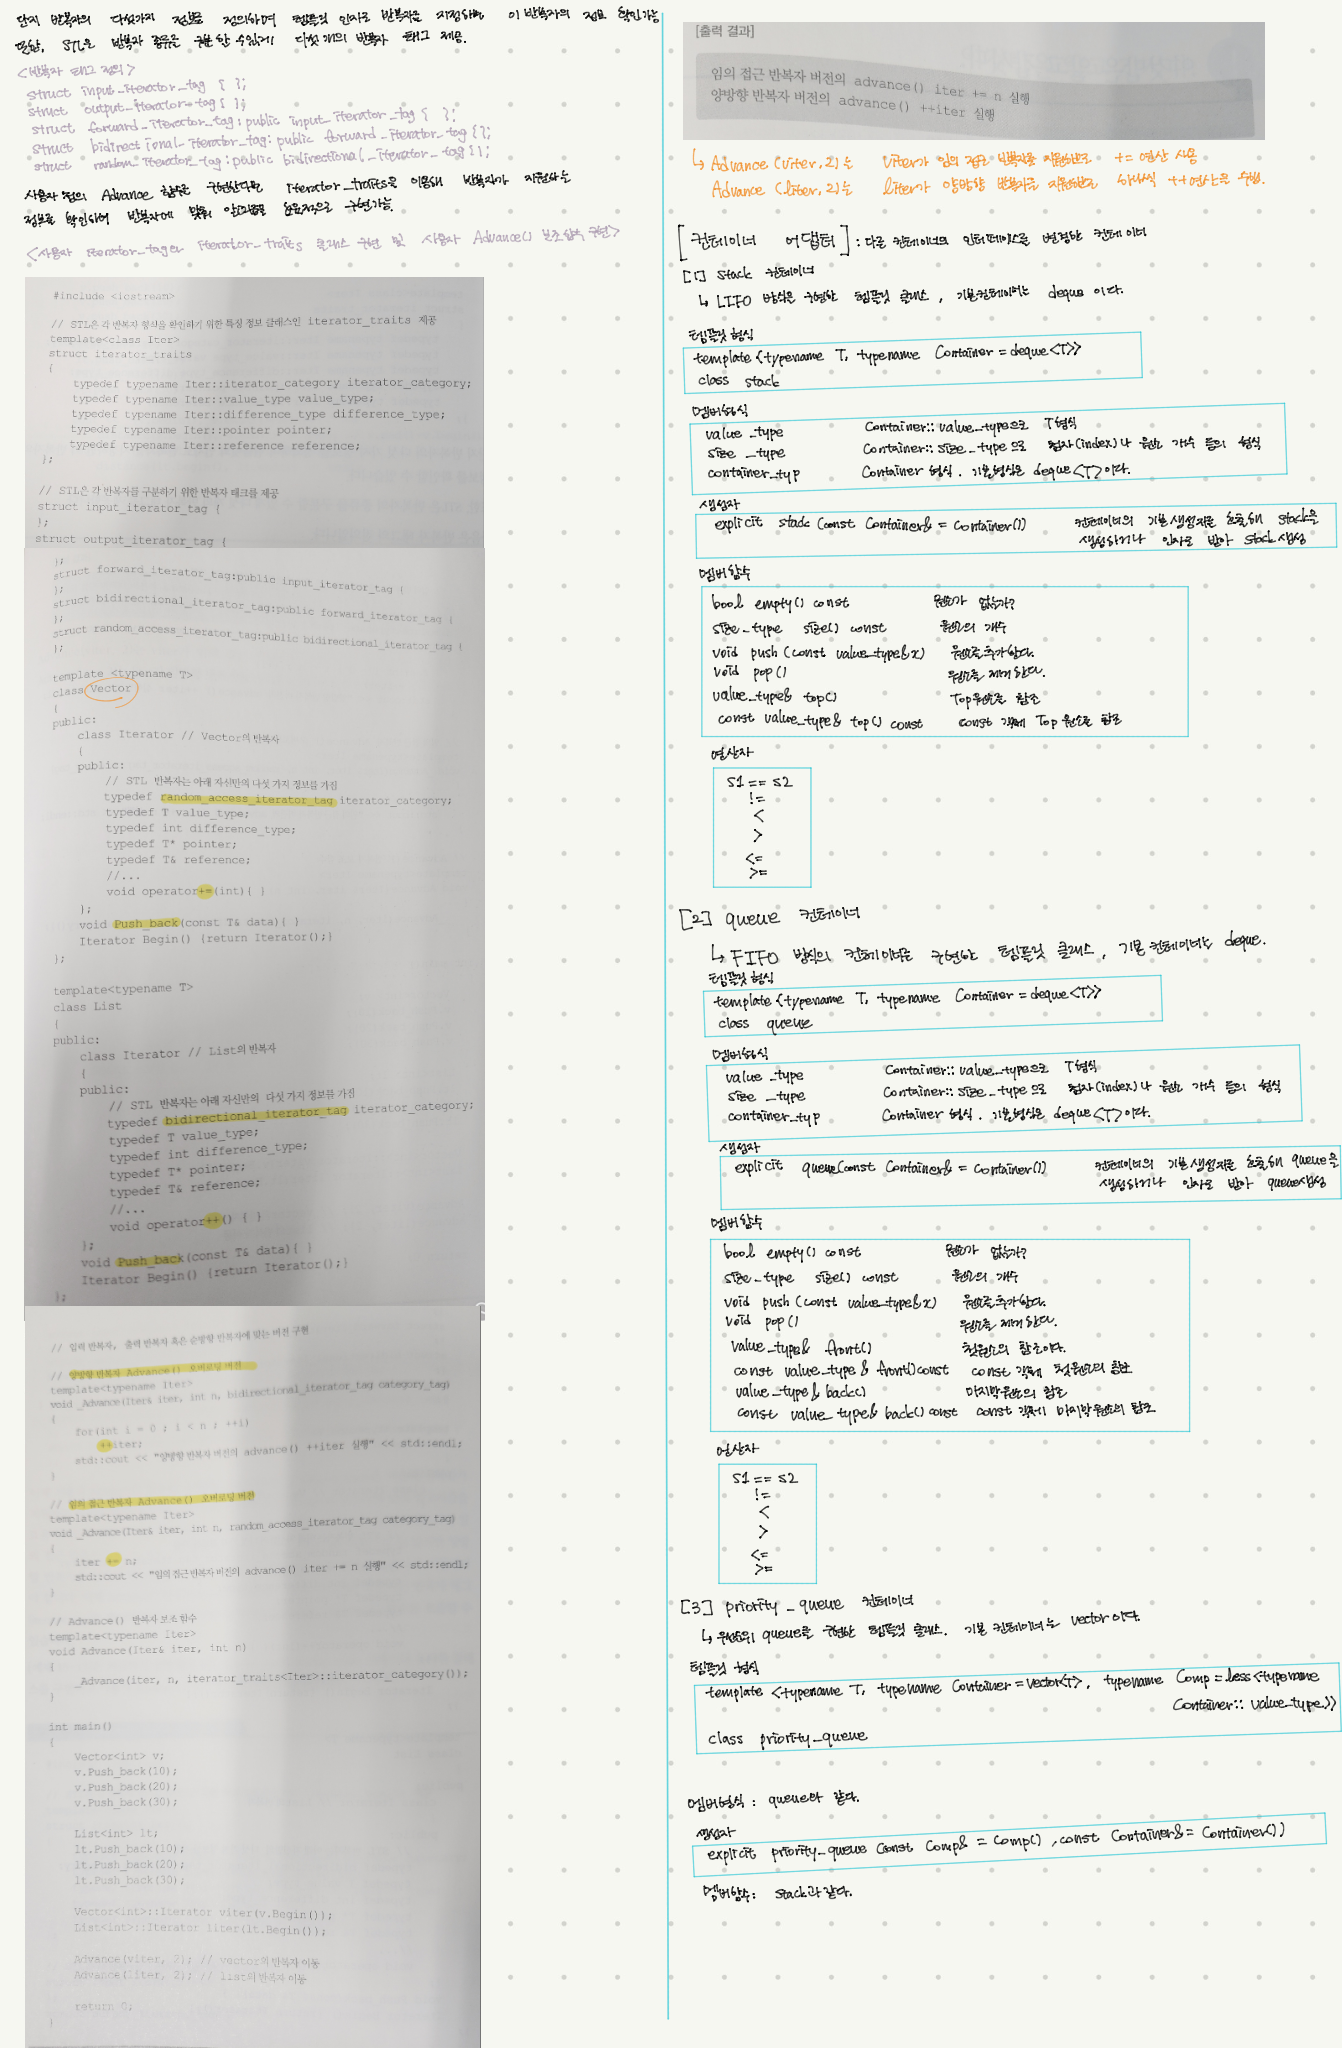 단지 반복자의 다섯가지 정보를 정의하며 템플릿 인자로 반복자를 지정하면 이 반복자의 정보 확인가능
또한, STL은 반복자 종류를 구분 할 수 있게 다섯 개의 반복자 태그 제공.
<반복자 태그 정의>
struct input_iterator_tag { };
struct output_iterator_tag { };
struct forward_iterator_tag : public input_iterator_tag { };
struct bidirectional_iterator_tag : public forward_iterator_tag { };
struct random_iterator_tag : public bidirectional_iterator_tag { };
사용자 정의 Advance 함수를 구현한다면 iterator_traits을 이용해 반복자가 지원하는
정보를 확인하여 반복자에 맞춰 알고리즘을 효율적으로 구현가능.
<사용자 iterator_tag와 iterator_traits 클래스 구현 및 사용자 Advance() 보조함수 구현>
#include <iostream>
// STL은 각 반복자 형식을 확인하기 위한 특징 정보 클래스인 iterator_traits 제공
template<class Iter>
struct iterator_traits
{
typedef typename Iter::iterator_category iterator_category;
typedef typename Iter::value_type value_type;
typedef typename Iter::difference_type difference_type;
typedef typename Iter::pointer pointer;
typedef typename Iter::reference reference;
};
// STL은 각 반복자를 구분하기 위한 반복자 태크를 제공
struct input_iterator_tag {
};
struct output_iterator_tag {
};
struct forward_iterator_tag:public input_iterator_tag {
};
struct bidirectional_iterator_tag:public forward_iterator_tag {
};
struct random_access_iterator_tag:public bidirectional_iterator_tag {
};
template <typename T>
class Vector
{
public:
class Iterator // Vector의 반복자
{
public:
// STL 반복자는 아래 자신만의 다섯 가지 정보를 가짐
typedef random_access_iterator_tag iterator_category;
typedef T value_type;
typedef int difference_type;
typedef T* pointer;
typedef T& reference;
//...
void operator+=(int){ }
};
void Push_back(const T& data){ }
Iterator Begin() {return Iterator();}
};
template<typename T>
class List
{
public:
class Iterator // List의 반복자
{
public:
// STL 반복자는 아래 자신만의 다섯 가지 정보를 가짐
typedef bidirectional_iterator_tag iterator_category;
typedef T value_type;
typedef int difference_type;
typedef T* pointer;
typedef T& reference;
//...
void operator++() { }
};
void Push_back(const T& data){ }
Iterator Begin() {return Iterator();}
};
// 입력 반복자, 출력 반복자 혹은 순방향 반복자에 맞는 버전 구현
// 양방향 반복자 Advance() 오버로딩 버전
template<typename Iter>
void _Advance(Iter& iter, int n, bidirectional_iterator_tag category_tag)
{
for(int i = 0 ; i < n ; ++i)
++iter;
std::cout << "양방향 반복자 버전의 advance() ++iter 실행" << std::endl;
}
// 임의 접근 반복자 Advance() 오버로딩 버전
template<typename Iter>
void _Advance(Iter& iter, int n, random_access_iterator_tag category_tag)
{
iter += n;
std::cout << "임의 접근 반복자 버전의 advance() iter += n 실행" << std::endl;
}
// Advance() 반복자 보조 함수
template<typename Iter>
void Advance(Iter& iter, int n)
{
_Advance(iter, n, iterator_traits<Iter>::iterator_category());
}
int main()
{
Vector<int> v;
v.Push_back(10);
v.Push_back(20);
v.Push_back(30);
List<int> lt;
lt.Push_back(10);
lt.Push_back(20);
lt.Push_back(30);
Vector<int>::Iterator viter(v.Begin());
List<int>::Iterator liter(lt.Begin());
Advance(viter, 2); // vector의 반복자 이동
Advance(liter, 2); // list의 반복자 이동
return 0;
}
[출력 결과]
임의 접근 반복자 버전의 advance() iter += n 실행
양방향 반복자 버전의 advance() ++iter 실행
↳ Advance(viter, 2)는 viter가 임의 접근 반복자를 지원하므로 += 연산 사용
Advance(liter, 2)는 liter가 양방향 반복자를 지원하므로 하나씩 ++연산을 수행.
[컨테이너 어댑터] : 다른 컨테이너의 인터페이스를 변경한 컨테이너
[1] stack 컨테이너
↳ LIFO 방식을 구현한 템플릿 클래스, 기본컨테이너는 deque 이다.
템플릿 형식
template<typename T, typename Container = deque<T>>
class stack
멤버형식
value_type Container::value_type으로 T형식
size_type Container::size_type으로 첨자(index)나 원소 개수 등의 형식
container_typ Container 형식. 기본형식은 deque<T>이다.
생성자
explicit stack(const Container& = Container()) 컨테이너의 기본생성자를 호출해 stack을
생성하거나 인자로 받아 stack 생성
멤버함수
bool empty() const 원소가 없는가?
size_type size() const 원소의 개수
void push(const value_type& x) 원소를 추가한다.
void pop() 원소를 제거한다.
value_type& top() Top원소를 참조
const value_type& top() const const 객체 Top 원소를 참조
연산자
S1 == S2
!=
<
>
<=
>=
[2] queue 컨테이너
↳ FIFO 방식의 컨테이너를 구현한 템플릿 클래스, 기본 컨테이너는 deque.
템플릿 형식
template<typename T, typename Container = deque<T>>
class queue
멤버형식
value_type Container::value_type으로 T형식
size_type Container::size_type으로 첨자(index)나 원소 개수 등의 형식
container_typ Container 형식. 기본형식은 deque<T>이다.
생성자
explicit queue(const Container& = Container()) 컨테이너의 기본생성자를 호출해 queue을
생성하거나 인자로 받아 queue생성
멤버함수
bool empty() const 원소가 없는가?
size_type size() const 원소의 개수
void push(const value_type& x) 원소를 추가한다.
void pop() 원소를 제거한다.
value_type& front() 첫원소의 참조이다.
const value_type& front() const const 객체 첫원소의 참조
value_type& back() 마지막원소의 참조
const value_type& back() const const 객체 마지막원소의 참조
연산자
S1 == S2
!=
<
>
<=
>=
[3] priority_queue 컨테이너
↳ 우선순위 queue를 구현한 템플릿 클래스. 기본 컨테이너는 vector이다.
템플릿 형식
template <typename T, typename Container = vector<T>, typename Comp = less<typename
Container::value_type>>
class priority_queue
멤버형식 : queue와 같다.
생성자
explicit priority_queue(const Comp& = Comp(), const Container& = Container())
멤버함수 : stack과 같다.